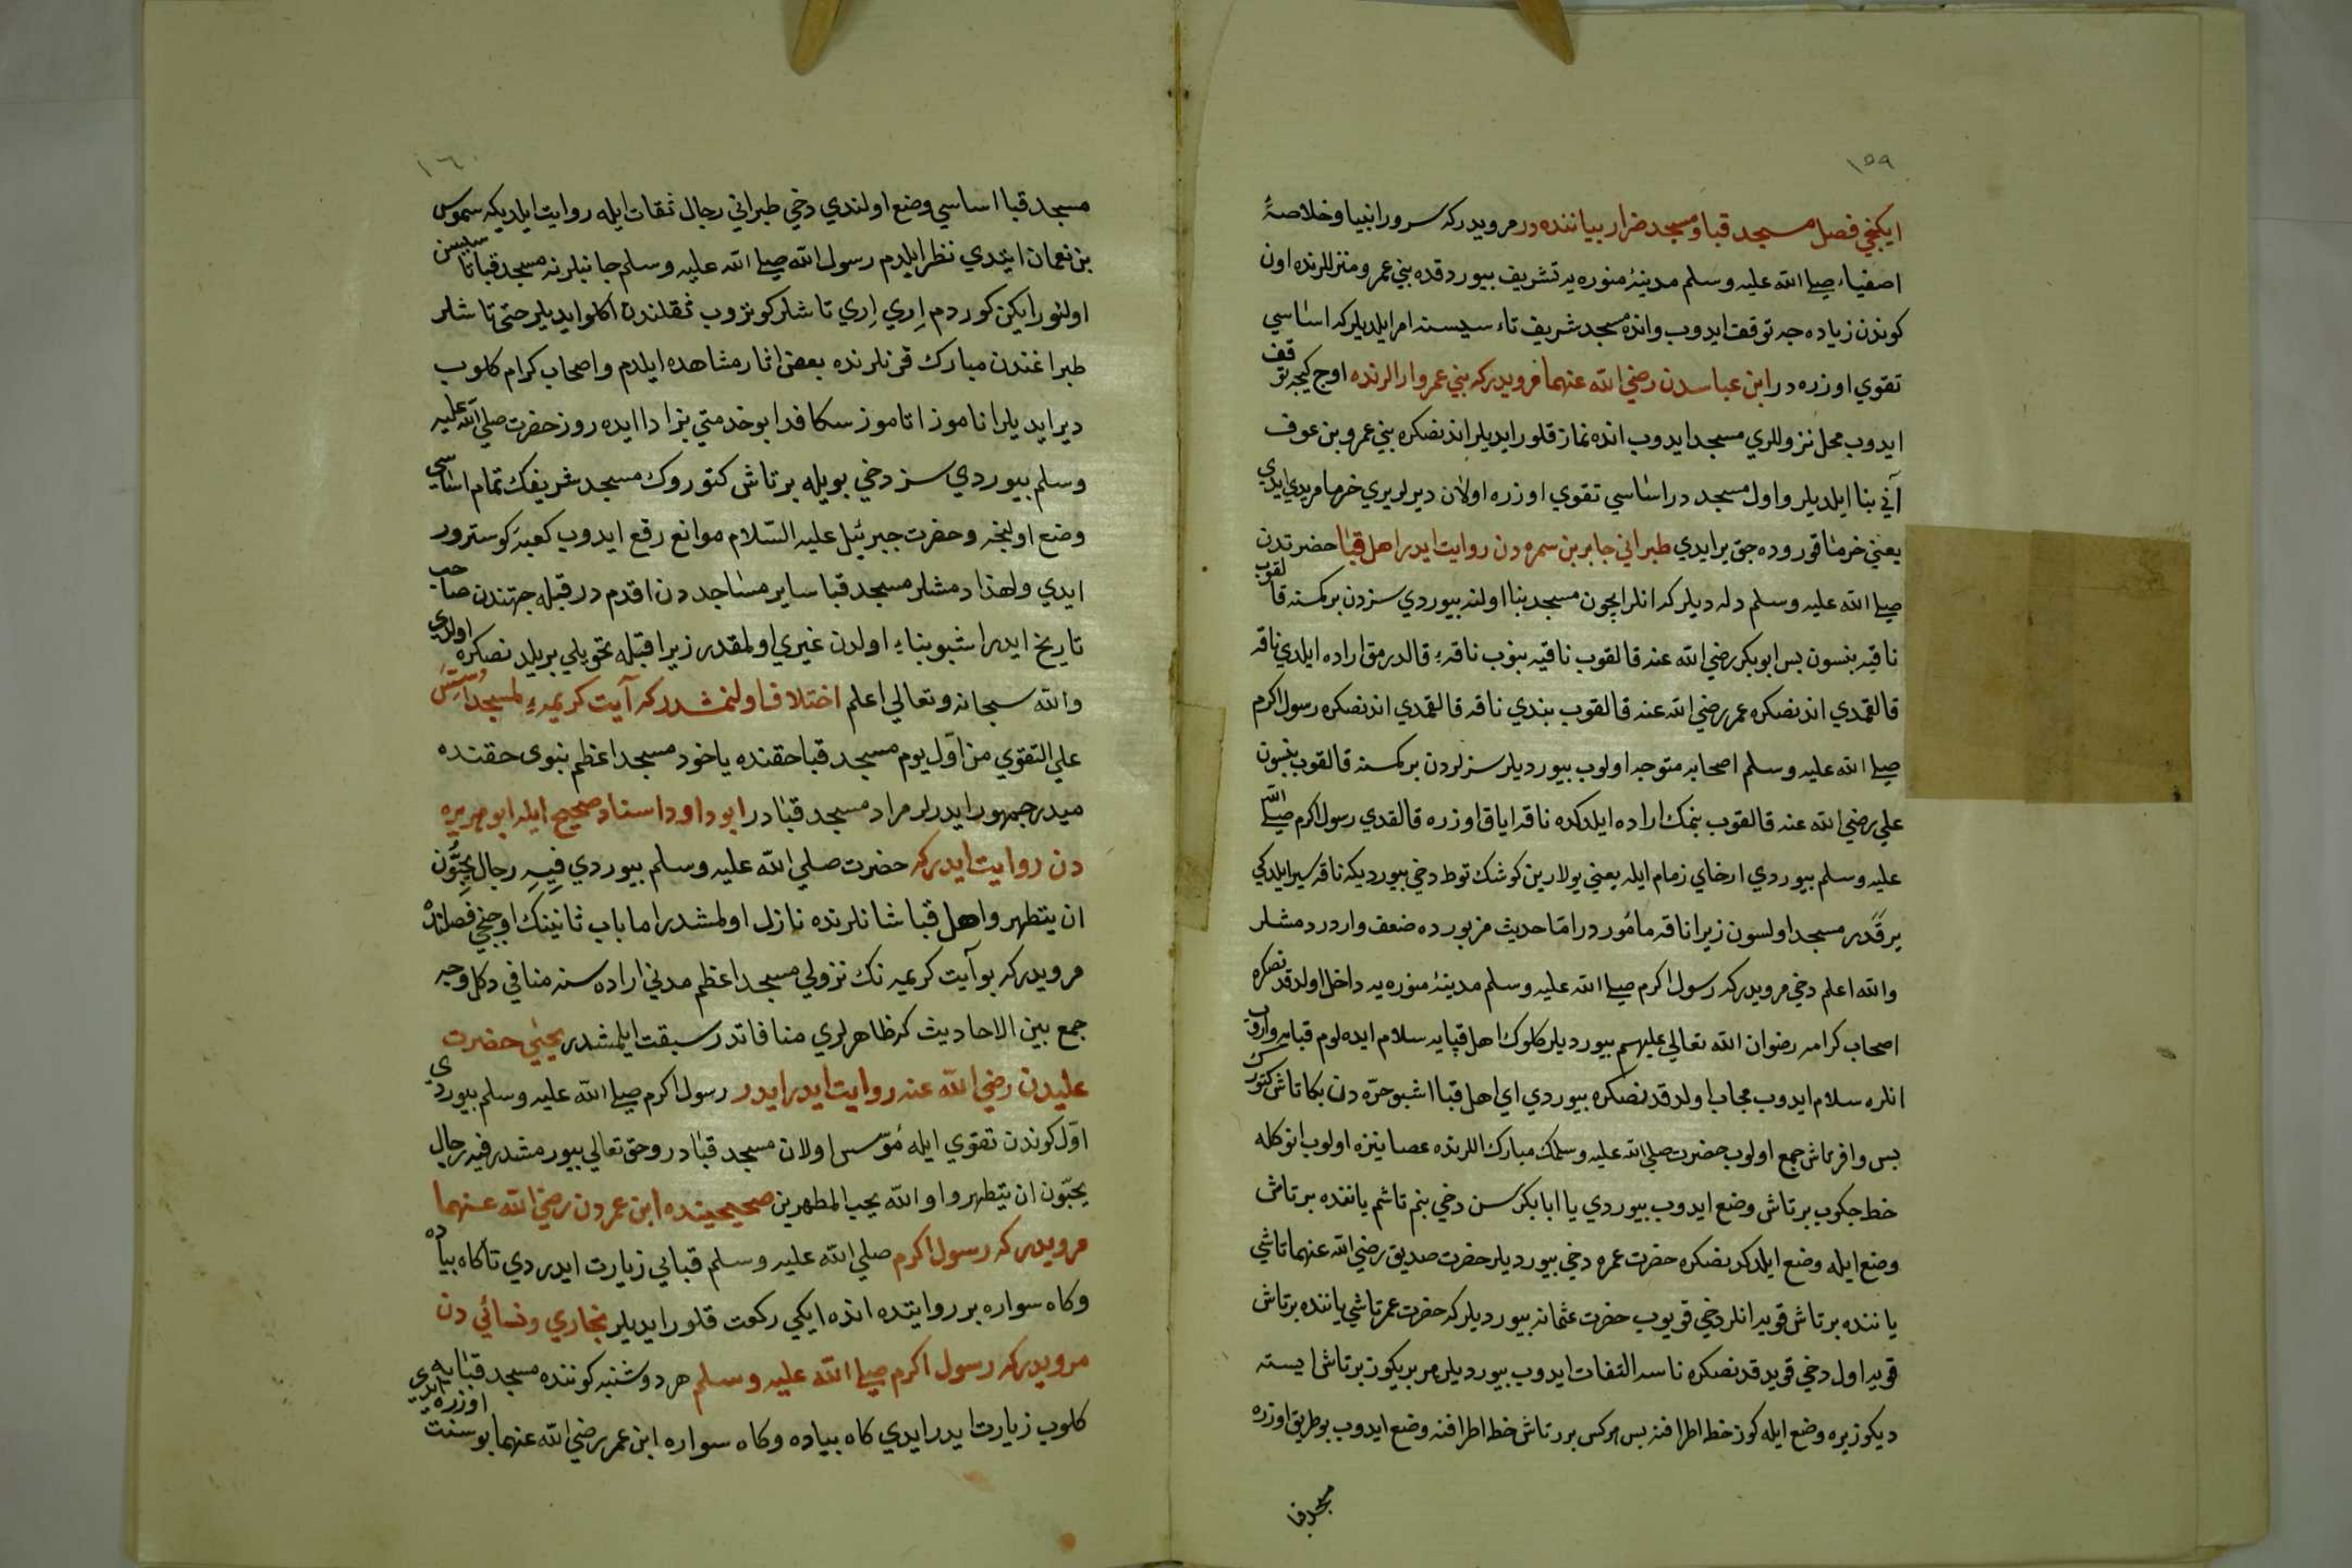 ١٥٩
ايكنجي فصل مسجد قبا ومسجد ضرار بياننده در مرويدر كه سرور انبيا وخلاصۀ
اصفياء صلى الله عليه وسلم مدينۀ منوره يه تشريف بيوردقده بني عمرو منزللرنده اون
كوندن زياده جه توقف ايدوب وانده مسجد شريف تاء سيسنه امر ايلديلر كه اساسي
تقوي اوزره در ابن عباسدن رضي الله عنهما مرويدر كه بني عمرو دارلرنده اوج كيجه توقف
ايدوب محل نزوللري مسجد ايدوب انده نماز قلور ايديلر اندنصكره بني عمرو بن عوف
آني بنا ايلديلر واول مسجد در اساسي تقوي اوزره اولان ديرلر يري خرما مربدي ايدي
يعني خرما قوروده جق ير ايدي طبراني جابر بن سمره دن روايت ايدر اهل قبا حضرتدن
صلى الله عليه وسلم دله ديلر كه انلر ايچون مسجد بنا اولنه بيوردي سزدن بر كمسنه قالقوب
ناقيه بنسون بس ابو بكر رضي الله عنه قالقوب ناقيه بنوب ناقه ء قالدرمق اراده ايلدي ناقه
قالقمدي اندنصكره عمر رضي الله عنه قالقوب بندي ناقه قالقمدي اندنصكره رسول اكرم
صلى الله عليه وسلم اصحابه متوجه اولوب بيورديلر سزلردن بر كمسنه قالقوب بنسون
علي رضي الله عنه قالقوب بنمك اراده ايلدكده ناقه اياق اوزره قالقدي رسول اكرم صلى الله
عليه وسلم بيوردي ارخاي زمام ايله يعني يولارين كوشك توط دخي بيورديكه ناقه سير ايلدكي
يرقدر مسجد اولسون زيرا ناقه مأمور در اما حديث مزبورده ضعف وارد ر دمشلر
والله اعلم دخي مرويدر كه رسول اكرم صلى الله عليه وسلم مدينۀ منوره يه داخل اولدقدنصكره
اصحاب كرامه رضوان الله تعالي عليهم بيورديلر كلوك اهل قبايه سلام ايده لوم قبايه واروب
انلره سلام ايدوب مجاب اولدقدنصكره بيوردي اي اهل قبا اشبو حره دن بكا تاش كتورك
بس وافر تاش جمع اولوب حضرت صلى الله عليه وسلمك مبارك اللرنده عصا نيزه اولوب انوكله
خط جكوب بر تاش وضع ايدوب بيوردي يا ابا بكر سن دخي بنم تاشم ياننده بر تاش
وضع ايله وضع ايلدكدنصكره حضرت عمره دخي بيورديلر حضرت صديق رضي الله عنهما تاشي
ياننده بر تاش قويه انلر دخي قويوب حضرت عثمانه بيورديلر كه حضرت عمر تاشي ياننده بر تاش
قويه اول دخي قويدقدنصكره ناسه التفات ايدوب بيورديلر هر بريكوز بر تاش ايسته
ديكوز يره وضع ايله كوز خط اطرافنه بس هركس بر تاش خط اطرافنه وضع ايدوب بو طريق اوزره
مسجد قبا
١٦٠
مسجد قبا اساسي وضع اولندي دخي طبراني رجال ثقات ايله روايت ايلديكه سموس
بن نعمان ايتدي نظر ايلدم رسول الله صلى الله عليه وسلم جانبلرنه مسجد قبا تاسيسن
اولنور ايكن كوردم اري اري تاشلر كوتروب ثقلندن اكلو ايديلر حتى تاشلر
طبراغندن مبارك قرنلرنده بعض اثار مشاهده ايلدم واصحاب كرام كلوب
دير ايديلر اناموز اتاموز سكا فدا بو خدمتي بزادا ايده روز حضرت صلى الله عليه
وسلم بيوردي سز دخي بويله بر تاش كتوروك مسجد شريفك تمام اساسي
وضع اولنجه وحضرت جبرئيل عليه السلام موانع رفع ايدوب كعبۀ كوسترور
ايدي ولهذا دمشلر مسجد قبا ساير مساجد دن اقدم در قبله جهتندن صاحب
تاريخ ايدر اشبو بناء اولدن غيري اولمقدر زيرا قبله تحويلي بر يلدنصكره اولدي
والله سبحانه وتعالي اعلم اختلاف اولنمشدر كه آيت كريمهء لمسجد اسس
علي التقوي من اول يوم مسجد قبا حقنده ياخود مسجد اعظم نبوي حقنده
ميدر جمهور ايدرلر مراد مسجد قبا در ابو داود اسناد صحيح ايله ابو هريره
دن روايت ايدر كه حضرت صلى الله عليه وسلم بيوردي فيه رجال يحبون
ان يتطهروا اهل قبا شانلرنده نازل اولمشدر اما باب ثانينك اوجنجي فصلنده
مرويدر كه بو آيت كريمه نك نزولي مسجد اعظم مدني اراده سنه منافي دكل وجه
جمع بين الاحاديث كه ظاهرلري منافاتدر سبقت ايلمشدر يحيى حضرت
عليدن رضي الله عنه روايت ايدر ايدر رسول اكرم صلى الله عليه وسلم بيوردي
اول كوندن تقوي ايله مؤسس اولان مسجد قبا در وحق تعالي بيورمشدر فيه رجال
يحبون ان يتطهروا والله يحب المطهرين صحيحينده ابن عمردن رضي الله عنهما
مرويدر كه رسول اكرم صلى الله عليه وسلم قبايي زيارت ايدردي تا كاه بياده
وكاه سواره بر روايتده انده ايكي ركعت قلور ايديلر بخاري ونسائي دن
مرويدر كه رسول اكرم صلى الله عليه وسلم هر دوشنبه كوننده مسجد قبايه
كلوب زيارت ايدر ايدي كاه بياده وكاه سواره ابن عمر رضي الله عنهما بو سنت اوزره ايدي